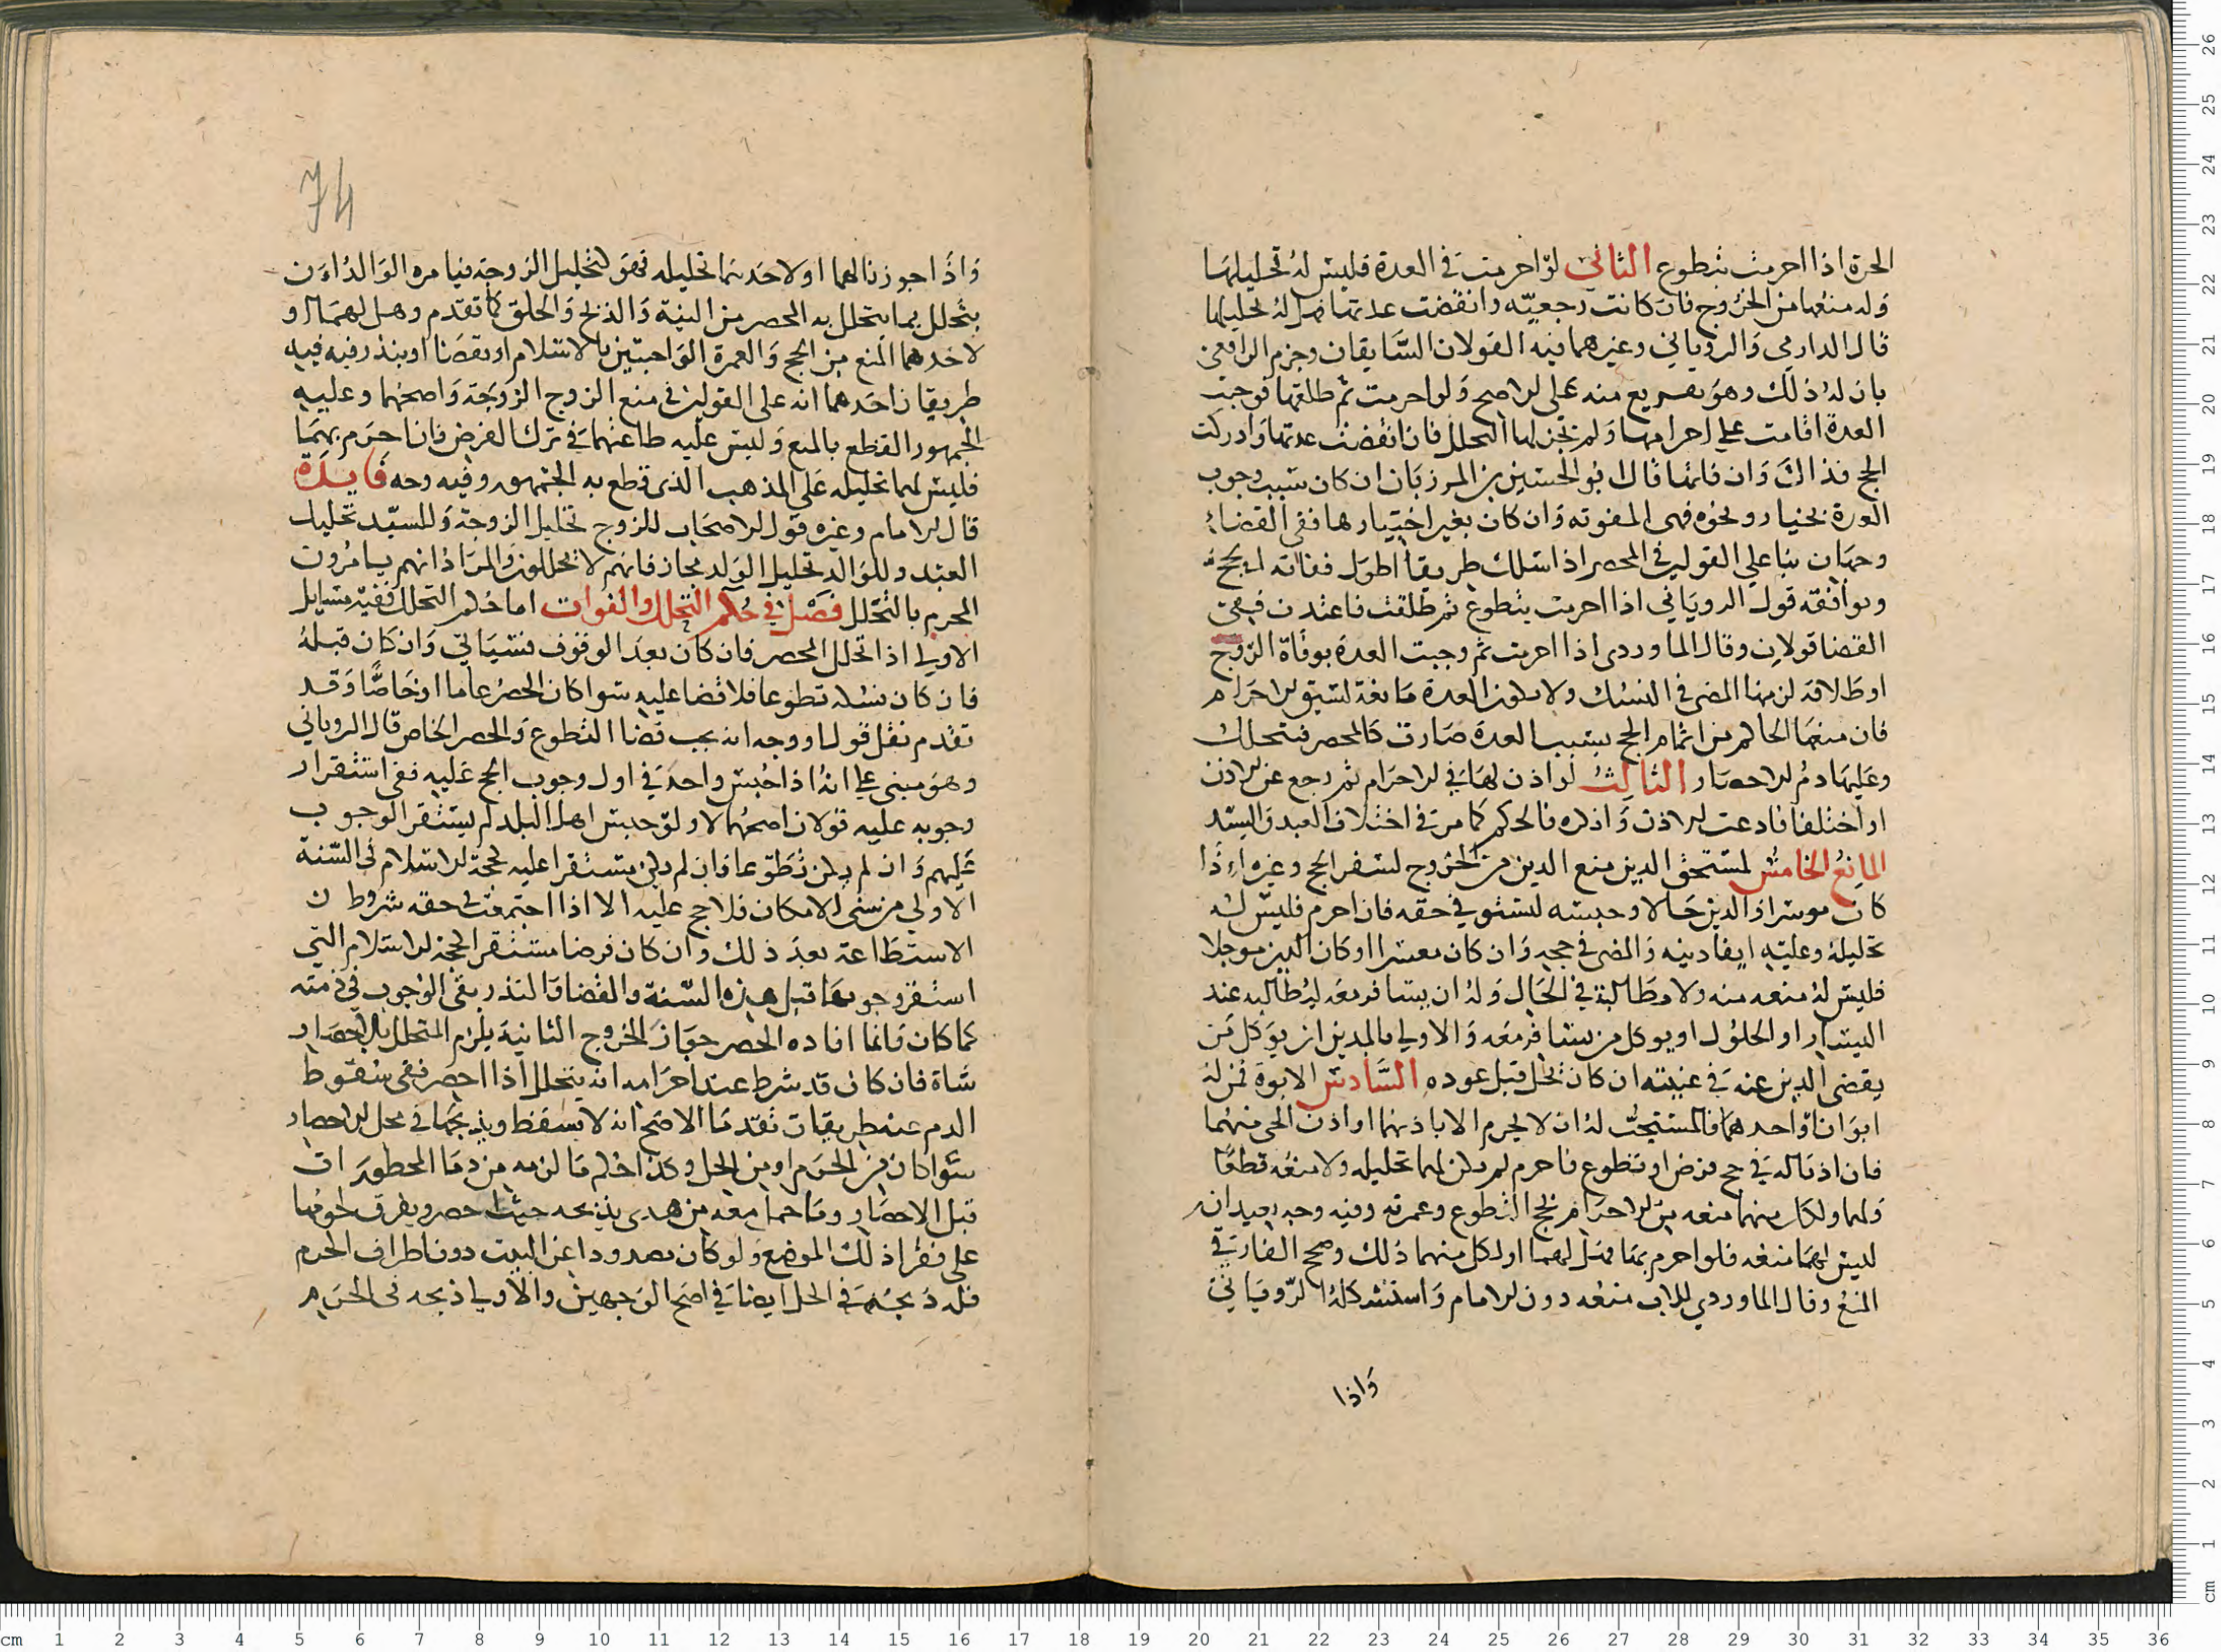 الحرة اذا احرمت بتطوع الثاني لو احرمت في العدة فليس له تحليلها
وله منعها من الخروج فان كانت رجعيه وانقضت عدتها فهل له تحليلها
قال الدارمي والروياني وغيرهما فيه القولان السابقان وجزم الرافعي
بان له ذلك وهو تفريع منه على الاصح ولو احرمت ثم طلقها فوجبت
العدة اقامت على احرامها ولم يجز لها التحلل فان انقضت عدتها وادركت
الحج فذاك وان فاتها قال ابو الحسين بن المرزبان ان كان سبب وجوب
العدة بخيار ونحوه فهي المفوته وان كان بغير اختيارها ففي القضاء
وجهان بنا على القولين في المحصر اذا سلك طريقا اطول ففاته الحج
ويوافقه قول الروياني اذا احرمت بتطوع ثم طلقت فاعتدت ففي
القضا قولان وقال الماوردي اذا احرمت ثم وجبت العدة بوفاة الزوج
او طلاقه لزمها المضي في النسك ولا يكون العدة مانعة لسبق الاحرام
فان منعها الحاكم من اتمام الحج بسبب العدة صارت كالمحصر فتتحلل
وعليها دم الاحصار الثالث لو اذن لها في الاحرام ثم رجع عن الاذن
او اختلفا فادعت الاذن وانكره فالحكم كما مر في اختلاف العبد والسيد
المانع الخامس لمستحق الدين منع المدين من الخروج لسفر الحج وغيره اذا
كان موسرا والدين حالا وحبسه لتستوفي حقه فان احرم فليس له
تحليله وعليه ايفا دينه والمضي في حجه وان كان معسرا او كان الدين موجلا
فليس له منعه منه ولا مطالبة في الحال وله ان يسافر معه ليطالبه عند
اليسار او الحلول او يوكل من يسافر معه والاولى بالمدين ان يوكل من
يقضي الدين عنه في غيبته ان كان يحل قبل عوده السادس الابوة فمن له
ابوان او احدهما فالمستحب له ان لا يحرم الا باذنهما او اذن الحي منهما
فان اذنا له في حج فرض او تطوع فاحرم لم يكن لهما تحليله ولا منعه قطعا
ولهما ولكل منهما منعه من الاحرام بحج التطوع وعمرته وفيه وجه بعيد انه
ليس لهما منعه فلو احرم بهما فهل لهما او لكل منهما ذلك وصحح الفارقي
المنع وقال الماوردي للاب منعه دون الامام واستشكله الروياني
واذا
74
واذا جوزنا لهما او لاحدهما تحليله فهو كتحليل الزوجة فيامره الوالد ان
يتحلل بما يتحلل به المحصر من النية والذبح والحلق كما تقدم وهل لهما او
لاحدهما المنع من الحج والعمرة الواجبتين بالاسلام او بقضا او بنذر فيه فيه
طريقان احدهما انه على القولين في منع الزوج الزوجة واصحهما وعليه
الجمهور القطع بالمنع وليس عليه طاعتهما في ترك الفرض فان احرم بهما
فليس لهما تحليله على المذهب الذي قطع به الجمهور وفيه وجه فايدة
قال الامام وغيره قول الاصحاب للزوج تحليل الزوجة وللسيد تحليل
العبد وللوالد تحليل الولد مجاز فانهم لا يحللون والمراد انهم يامرون
المحرم بالتحلل فصل في حكم التحلل والفوات اما حكم التحلل ففيه مسايل
الاولى اذا تحلل المحصر فان كان بعد الوقوف فسياتي وان كان قبله
فان كان نسكه تطوعا فلا قضا عليه سوا كان الحصر عاما او خاصا وقد
تقدم نقل قول او وجه انه يجب قضا التطوع والحصر الخاص قال الروياني
وهو مبني على انه اذا حبس واحد في اول وجوب الحج عليه ففي استقرار
وجوبه عليه قولان اصحهما لا ولو حبس اهل البلد لم يستقر الوجوب
عليهم وان لم يكن تطوعا فان لم يكن مستقرا عليه كحجة الاسلام في السنة
الاولى من سني الامكان فلا حج عليه الا اذا اجتمعت في حقه شروط
الاستطاعة بعد ذلك وان كان فرضا مستقرا كحجة الاسلام التي
استقر وجوبها قبل هذه السنة والقضا والنذر بقي الوجوب في ذمته
كما كان وانما افاده الحصر جواز الخروج الثانية يلزم المتحلل بالاحصار
شاة فان كان قد شرط عند احرامه انه يتحلل اذا احصر ففي سقوط
الدم عنه طريقان تقدما الاصح انه لا يسقط ويذبحها في محل الاحصار
سوا كان من الحرم او من الحل وكذا حكم ما لزمه من دما المحظورات
قبل الاحصار وما حمل معه من هدي يذبحه حيث احصر ويفرق لحومها
على فقرا ذلك الموضع ولو كان مصدودا عن البيت دون اطراف الحرم
فله ذبحه في الحل ايضا في اصح الوجهين والاولى ذبحه في الحرم